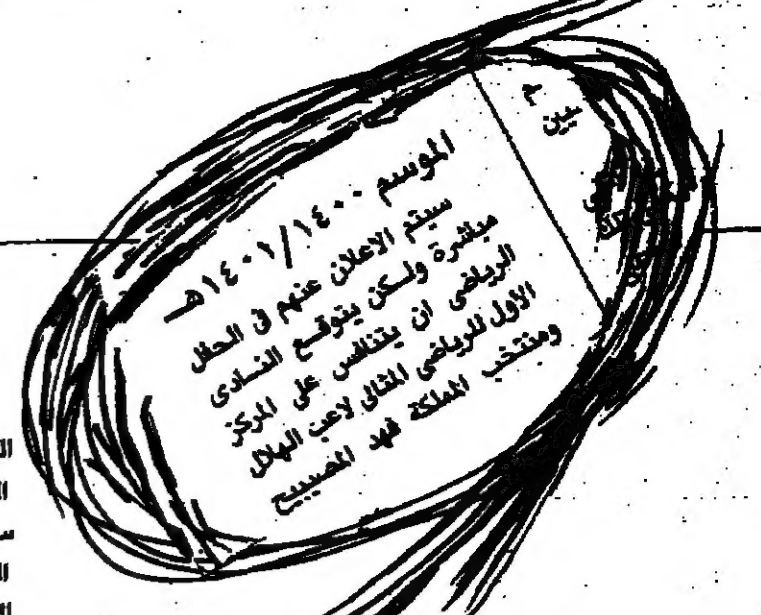 الموسم ١٤٠١/١٤٠٠هـ
سيتم الاعلان عنهم فى الحفل
مباشرة ولكن يتوقع النادى
الرياضى ان يتنافس على المركز
الأول للرياضى المثالى لاعب الهلال
ومنتخب المملكة فهد المصيبيح